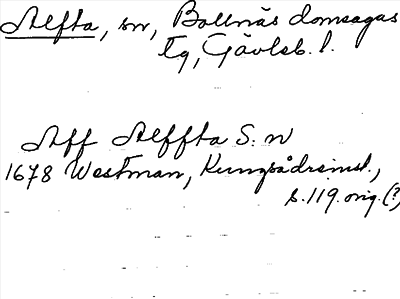 Alfta, sn, Bollnäs domsagas
tg, Gävleb. l.
Aff Alffta S:n
1678 Westman, Kungsådreinst.,
s. 119. orig. (?)